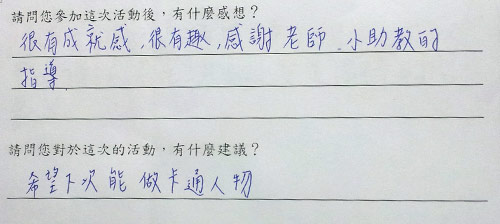 請問您參加這次活動後，有什麼感想？
很有成就感，很有趣，感謝老師、小助教的
指導
請問您對於這次的活動，有什麼建議？
希望下次能做卡通人物